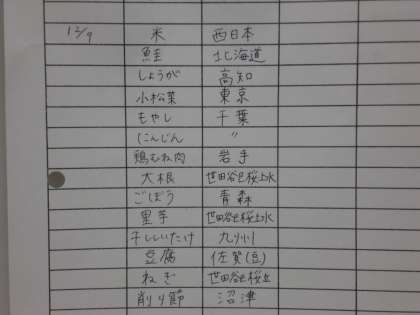 12/9 米 西日本
鮭 北海道
しょうが 高知
小松菜 東京
もやし 千葉
にんじん 〃
鶏むね肉 岩手
大根 世田谷区桜上水
ごぼう 青森
里芋 世田谷区桜上水
干ししいたけ 九州
豆腐 佐賀(豆)
ねぎ 世田谷区桜上
削り節 沼津